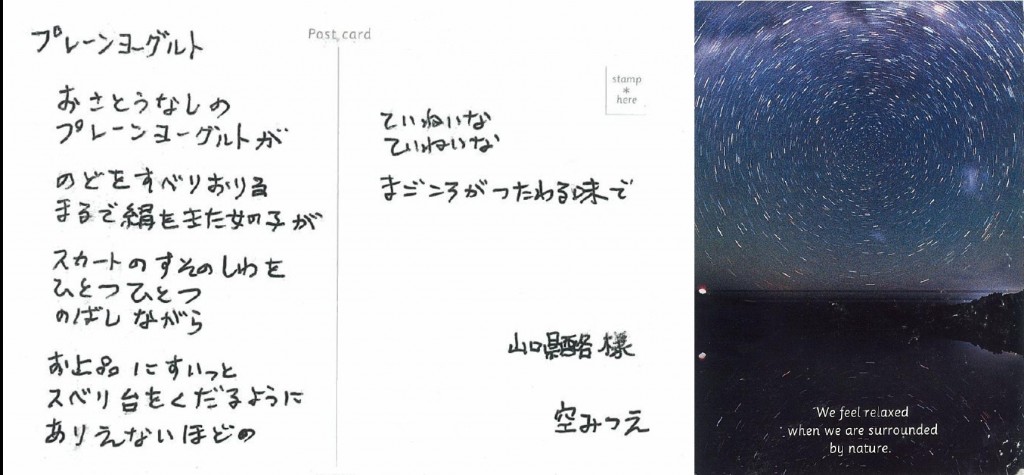 プレーンヨーグルト
おさとうなしの
プレーンヨーグルトが
のどをすべりおりる
まるで絹をきた女の子が
スカートのすそのしわを
ひとつひとつ
のばしながら
お上品にすいっと
スベリ台をくだるように
ありえないほどの
Post card
stamp
*
here
ていねいな
ていねいな
まごころがつたわる味で
山口県酪様
空みつえ
We feel relaxed
when we are surrounded
by nature.